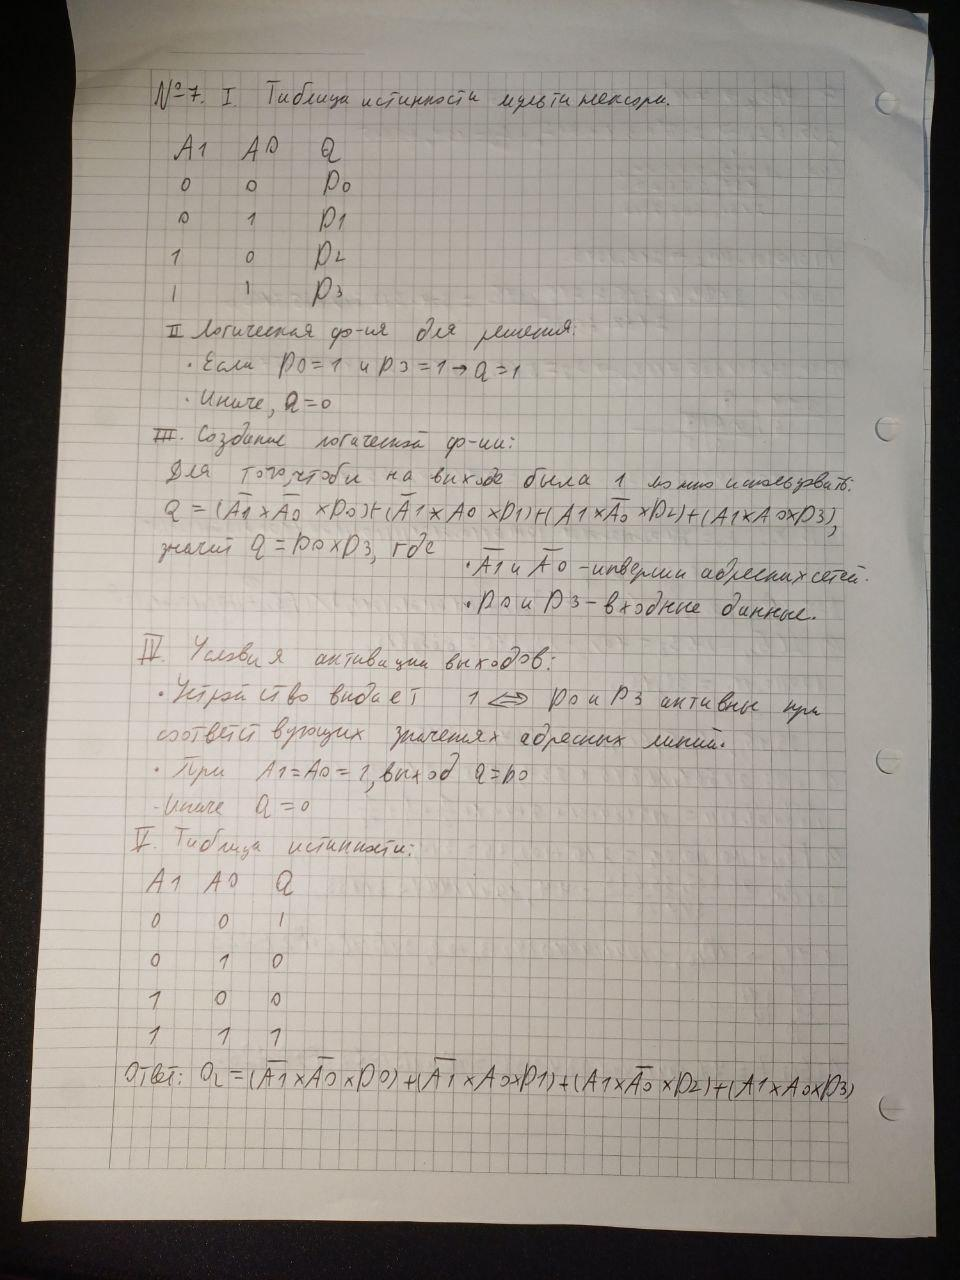 №7. I. Таблица истинности мультиплексора.
A1 A0 Q
0 0 D0
0 1 D1
1 0 D2
1 1 D3
II Логическая ф-ия для решения:
· Если D0=1 и D3=1→Q=1
· Иначе, Q=0
III. Создание логической ф-ии:
Для того, чтобы на выходе была 1 можно использовать:
Q = (A̅1̅×A̅0̅×D0)+(A̅1̅×A0×D1)+(A1×A̅0̅×D2)+(A1×A0×D3),
значит Q=D0×D3, где
· A̅1̅ и A̅0̅ - инверсии адресных сетей.
· D0 и D3 - входные данные.
IV. Условия активации выходов:
· Устройство выдает 1 ⇔ D0 и D3 активны при
соответствующих значениях адресных линий.
· При A1=A0=1, выход Q=D0
- Иначе Q=0
V. Таблица истинности:
A1 A0 Q
0 0 1
0 1 0
1 0 0
1 1 1
Ответ: Q = (A̅1̅×A̅0̅×D0)+(A̅1̅×A0×D1)+(A1×A̅0̅×D2)+(A1×A0×D3)